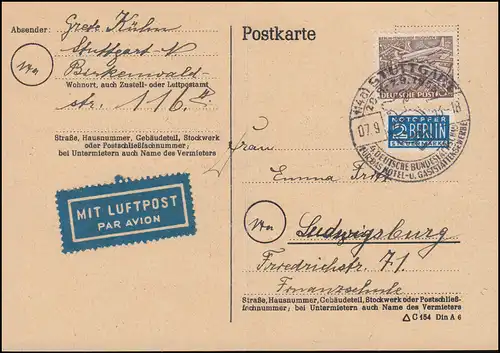 Absender: Grete Kühm
Stuttgart N
14a
Birkenwald
Wohnort, auch Zustell- oder Leitpostamt
str. 116
Straße, Hausnummer, Gebäudeteil, Stockwerk
oder Postschließfachnummer;
bei Untermietern auch Name des Vermieters
MIT LUFTPOST
PAR AVION
Postkarte
DEUTSCHE POST
(14a) STUTTGART
07.9
NOTOPFER
2 BERLIN
STEUERMARKE
4. DEUTSCHE BUNDESFACHSCHAU
FÜR DAS HOTEL- U. GASTSTÄTTENGEWERBE
Frau
Emma
14a
Ludwigsburg
Friedrichstr. 71
Finanzschule
Straße, Hausnummer, Gebäudeteil, Stockwerk oder Postschließ-
fachnummer; bei Untermietern auch Name des Vermieters
△ C 154 Din A 6